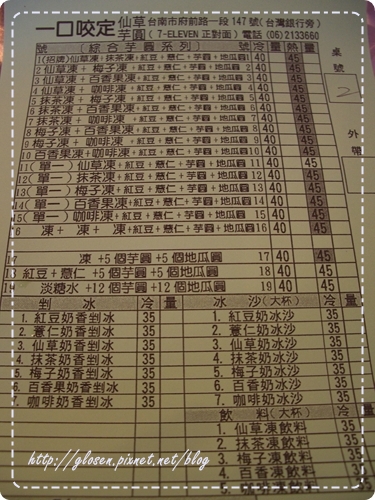 一口咬定 仙草 台南市府前路一段147號(台灣銀行旁)
芋圓 ( 7-ELEVEN 正對面) 電話 (06)2133660
號 (綜合芋圓系列) 號 冷 量 熱 量 桌號
1(招牌)仙草凍+抹茶凍+紅豆+薏仁+芋圓+地瓜圓1 40 40
2 仙草凍+梅子凍+紅豆+薏仁+芋圓+地瓜圓 2 40 45
3 仙草凍+百香果凍+紅豆+薏仁+芋圓+地瓜圓 3 40 45
4 仙草凍+ 咖啡凍+紅豆+薏仁+芋圓+地瓜圓 4 40 45
5 抹茶凍+ 梅子凍+紅豆+薏仁+芋圓+地瓜圓 5 40 45
6 抹茶凍+百香果凍+紅豆+薏仁+芋圓+地瓜圓 6 40 45
7 抹茶凍+ 咖啡凍+紅豆+薏仁+芋圓+地瓜圓 7 40 45
8 梅子凍+百香果凍+紅豆+薏仁+芋圓+地瓜圓 8 40 45
9 梅子凍+ 咖啡凍+紅豆+薏仁+芋圓+地瓜圓 9 40 45
10 百香果凍+咖啡凍+紅豆+薏仁+芋圓+地瓜圓 10 40 45
11(單一) 仙草凍+紅豆+薏仁+芋圓+地瓜圓 11 40 45
12(單一) 抹茶凍+紅豆+薏仁+芋圓+地瓜圓 12 40 45
13(單一) 梅子凍+紅豆+薏仁+芋圓+地瓜圓 13 40 45
14(單一) 百香果凍+紅豆+薏仁+芋圓+地瓜圓 14 40 45
15(單一) 咖啡凍+紅豆+薏仁+芋圓+地瓜圓 15 40 45
6 凍+ 凍+ 凍+紅豆+薏仁+芋圓+地瓜圓 16 40 45
外帶
凍+5個芋圓+5個地瓜圓 17 40 45
紅豆+薏仁 +5個芋圓+5個地瓜圓 18 40 45
淡糖水 +12個芋圓+12個地瓜圓 19 40 45
剉 冰 冷 量
1. 紅豆奶香剉冰 35
2. 薏仁奶香剉冰 35
3. 仙草奶香剉冰 35
4. 抹茶奶香剉冰 35
5. 梅子奶香剉冰 35
6. 百香果奶香剉冰 35
7. 咖啡奶香剉冰 35
冰 沙(大杯) 冷 量
1. 紅豆奶冰沙 35
2. 薏仁奶冰沙 35
3. 仙草奶冰沙 35
4. 抹茶奶冰沙 35
5. 梅子奶冰沙 35
6. 百香奶冰沙 35
7. 咖啡奶冰沙 35
飲 料(大杯) 冷
1. 仙草凍飲料 35
2. 抹茶凍飲料 35
3. 梅子凍飲料 35
4. 百香凍飲料 35
http://glosen.pixnet.net/blog